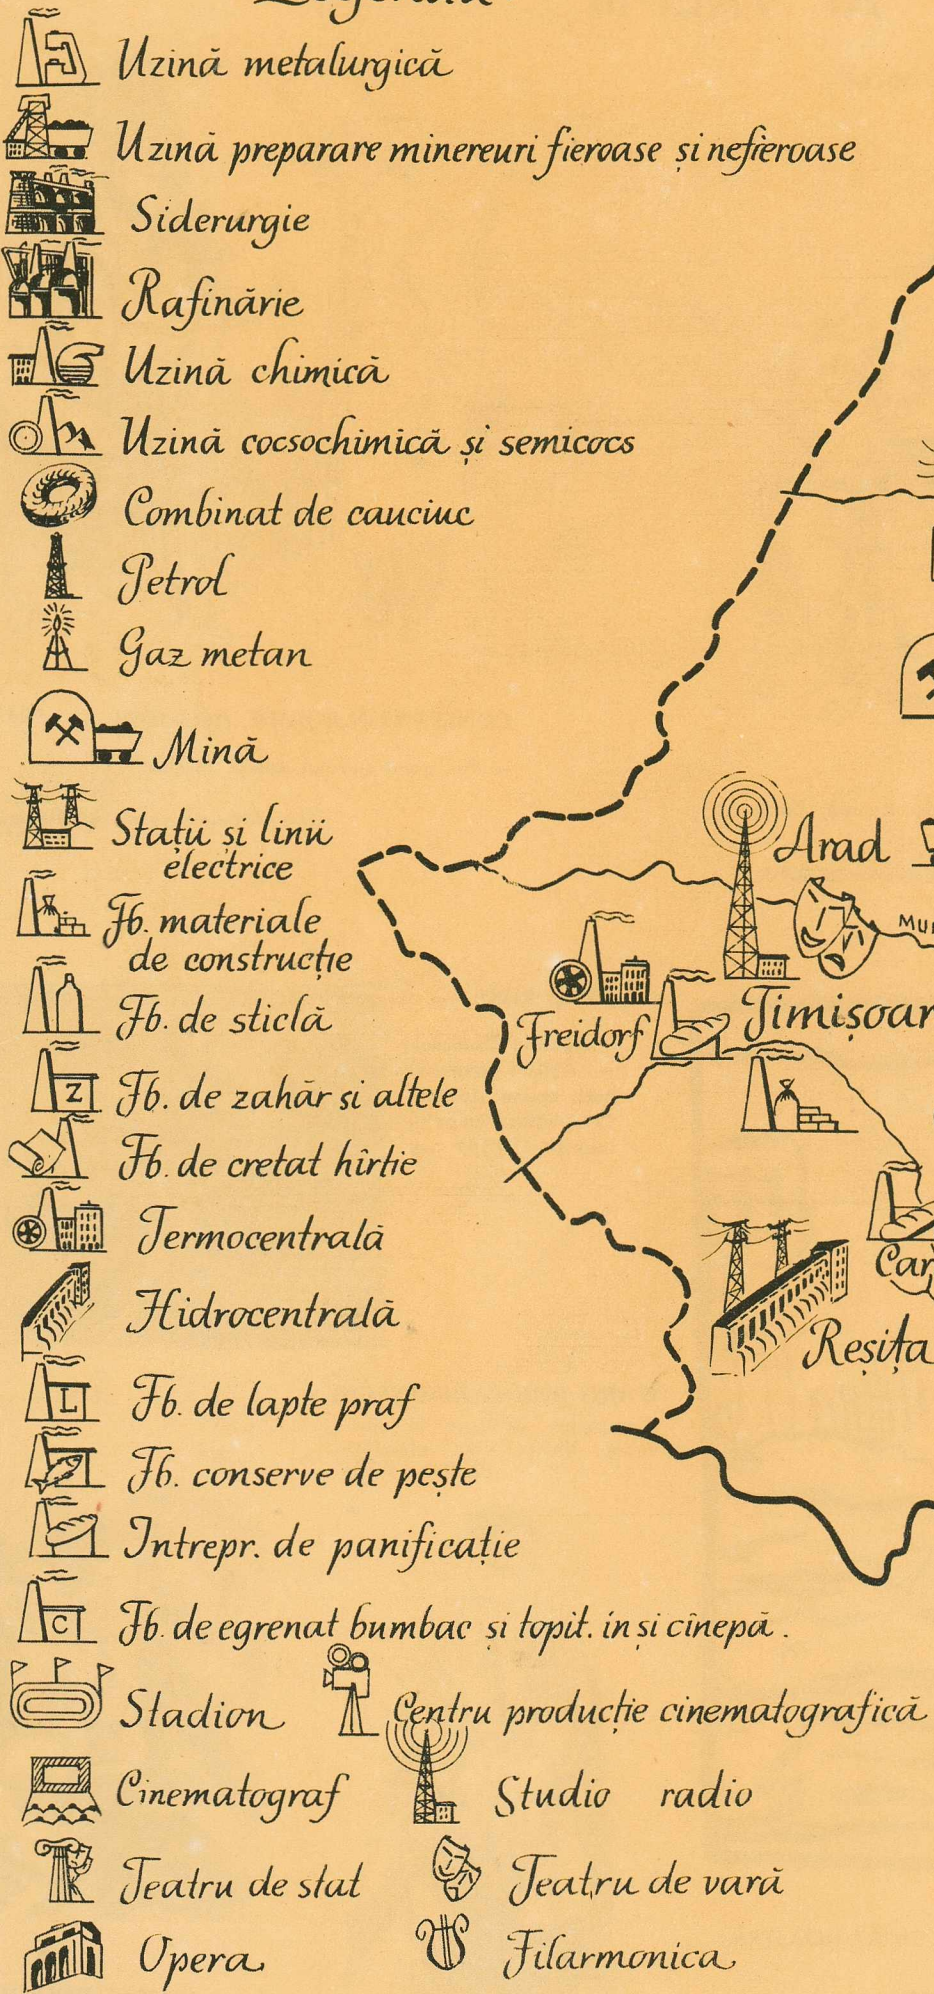 Uzină metalurgică
Uzină preparare minereuri fieroase și nefieroase
Siderurgie
Rafinărie
Uzină chimică
Uzină cocsochimică și semicocs
Combinat de cauciuc
Petrol
Gaz metan
Mină
Stații și linii
electrice
Fb. materiale
de construcție
Fb. de sticlă
Z
Fb. de zahăr si altele
Fb. de cretat hîrtie
Termocentrală
Hidrocentrală
L
Fb. de lapte praf
Fb. conserve de pește
Intrepr. de panificație
C
Fb. de egrenat bumbac și topit. in și cînepă.
Stadion
Centru producție cinematografică
Cinematograf
Studio radio
Teatru de stat
Teatru de vară
Opera
Filarmonica
Arad
Freidorf
Reșița